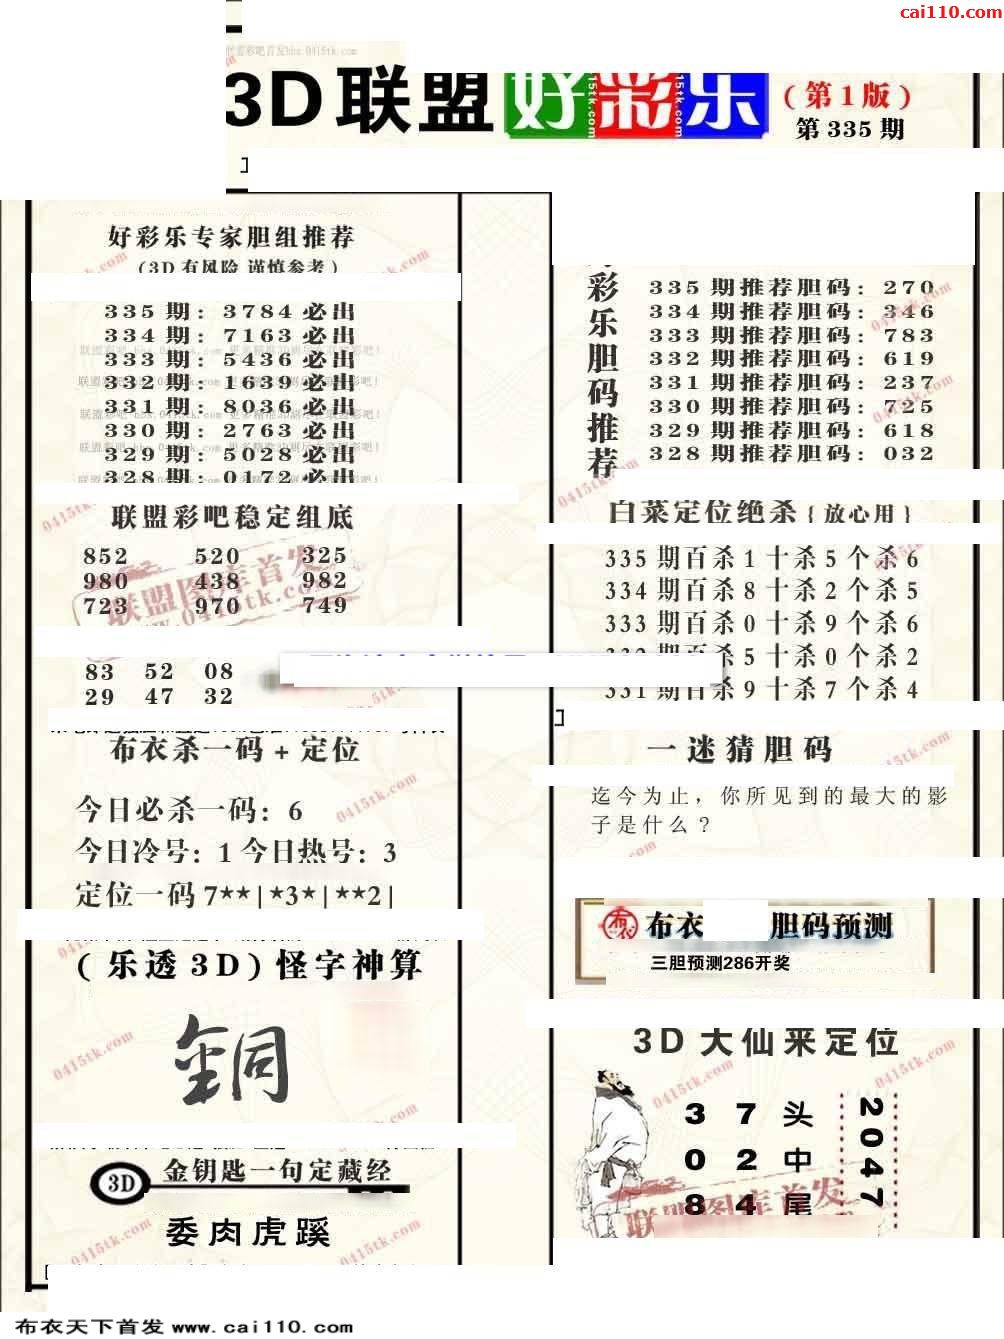 cai110.com
3D联盟好彩乐
(第1版)
第335期
好彩乐专家胆组推荐
(3D有风险 谨慎参考)
335期: 3784必出
334期: 7163必出
333期: 5436必出
332期: 1639必出
331期: 8036必出
330期: 2763必出
329期: 5028必出
328期: 0172必出
联盟彩吧稳定组底
852 520 325
980 438 982
723 970 749
83 52 08
29 47 32
布衣杀一码+定位
今日必杀一码: 6
今日冷号: 1 今日热号: 3
定位一码 7**|*3*|**2|
(乐透3D)怪字神算
銅
3D
金钥匙一句定藏经
委肉虎蹊
彩乐胆码推荐
335期推荐胆码: 270
334期推荐胆码: 346
333期推荐胆码: 783
332期推荐胆码: 619
331期推荐胆码: 237
330期推荐胆码: 725
329期推荐胆码: 618
328期推荐胆码: 032
白菜定位绝杀{放心用}
335期百杀1十杀5个杀6
334期百杀8十杀2个杀5
333期百杀0十杀9个杀6
332期百杀5十杀0个杀2
331期百杀9十杀7个杀4
一迷猜胆码
迄今为止，你所见到的最大的影
子是什么?
布衣
胆码预测
三胆预测286开奖
3D大仙来定位
3 7头
0 2中
8 4尾
2047
联盟图库首发
0415tk.com
布衣天下首发 www.cai110.com